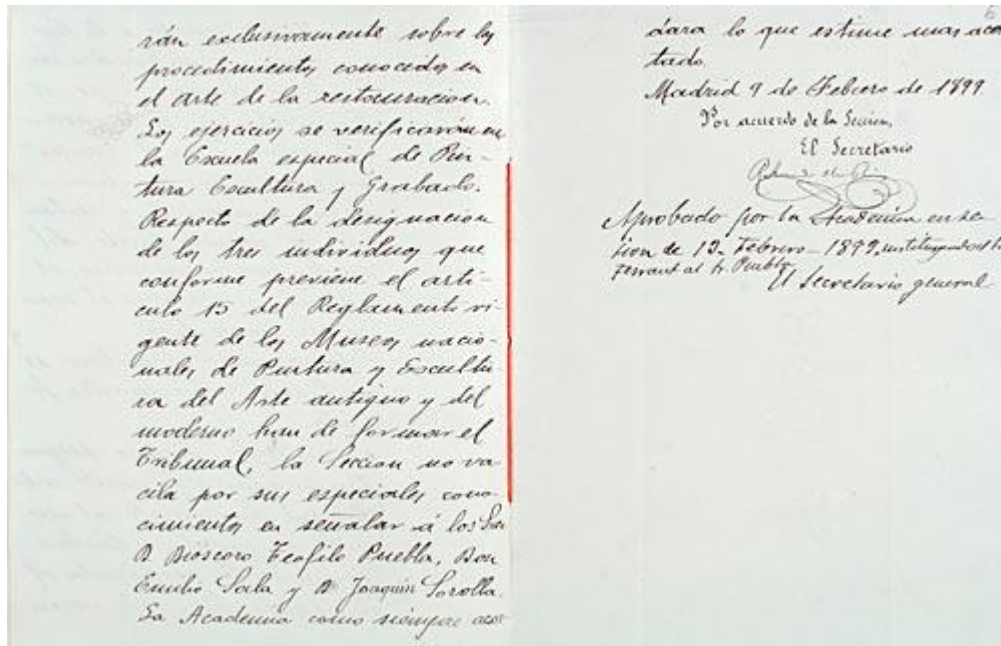 rán exclusivamente sobre los
procedimientos conocidos en
el arte de la restauracion.
Los ejercicios se verificarán en
la Escuela especial de Pin-
tura Escultura y Grabado.
Respecto de la designacion
de los tres individuos que
conforme previene el arti-
culo 15 del Reglamento vi-
gente de los Museos nacio-
nales de Pintura y Escultu-
ra del Arte antiguo y del
moderno han de formar el
Tribunal, la Seccion no va-
cila por sus especiales cono-
cimientos en señalar á los Sres
D. Dioscoro Teofilo Puebla, Don
Emilio Sala y D. Joaquin Sorolla.
La Academia como siempre acor
6
dara lo que estime mas acer
tado.
Madrid 9 de Febrero de 1899
Por acuerdo de la Seccion,
El Secretario
Aprobado por la Academia en se-
sion de 13 Febrero - 1899,
Ferrant al Sr. Puebla
El Secretario general